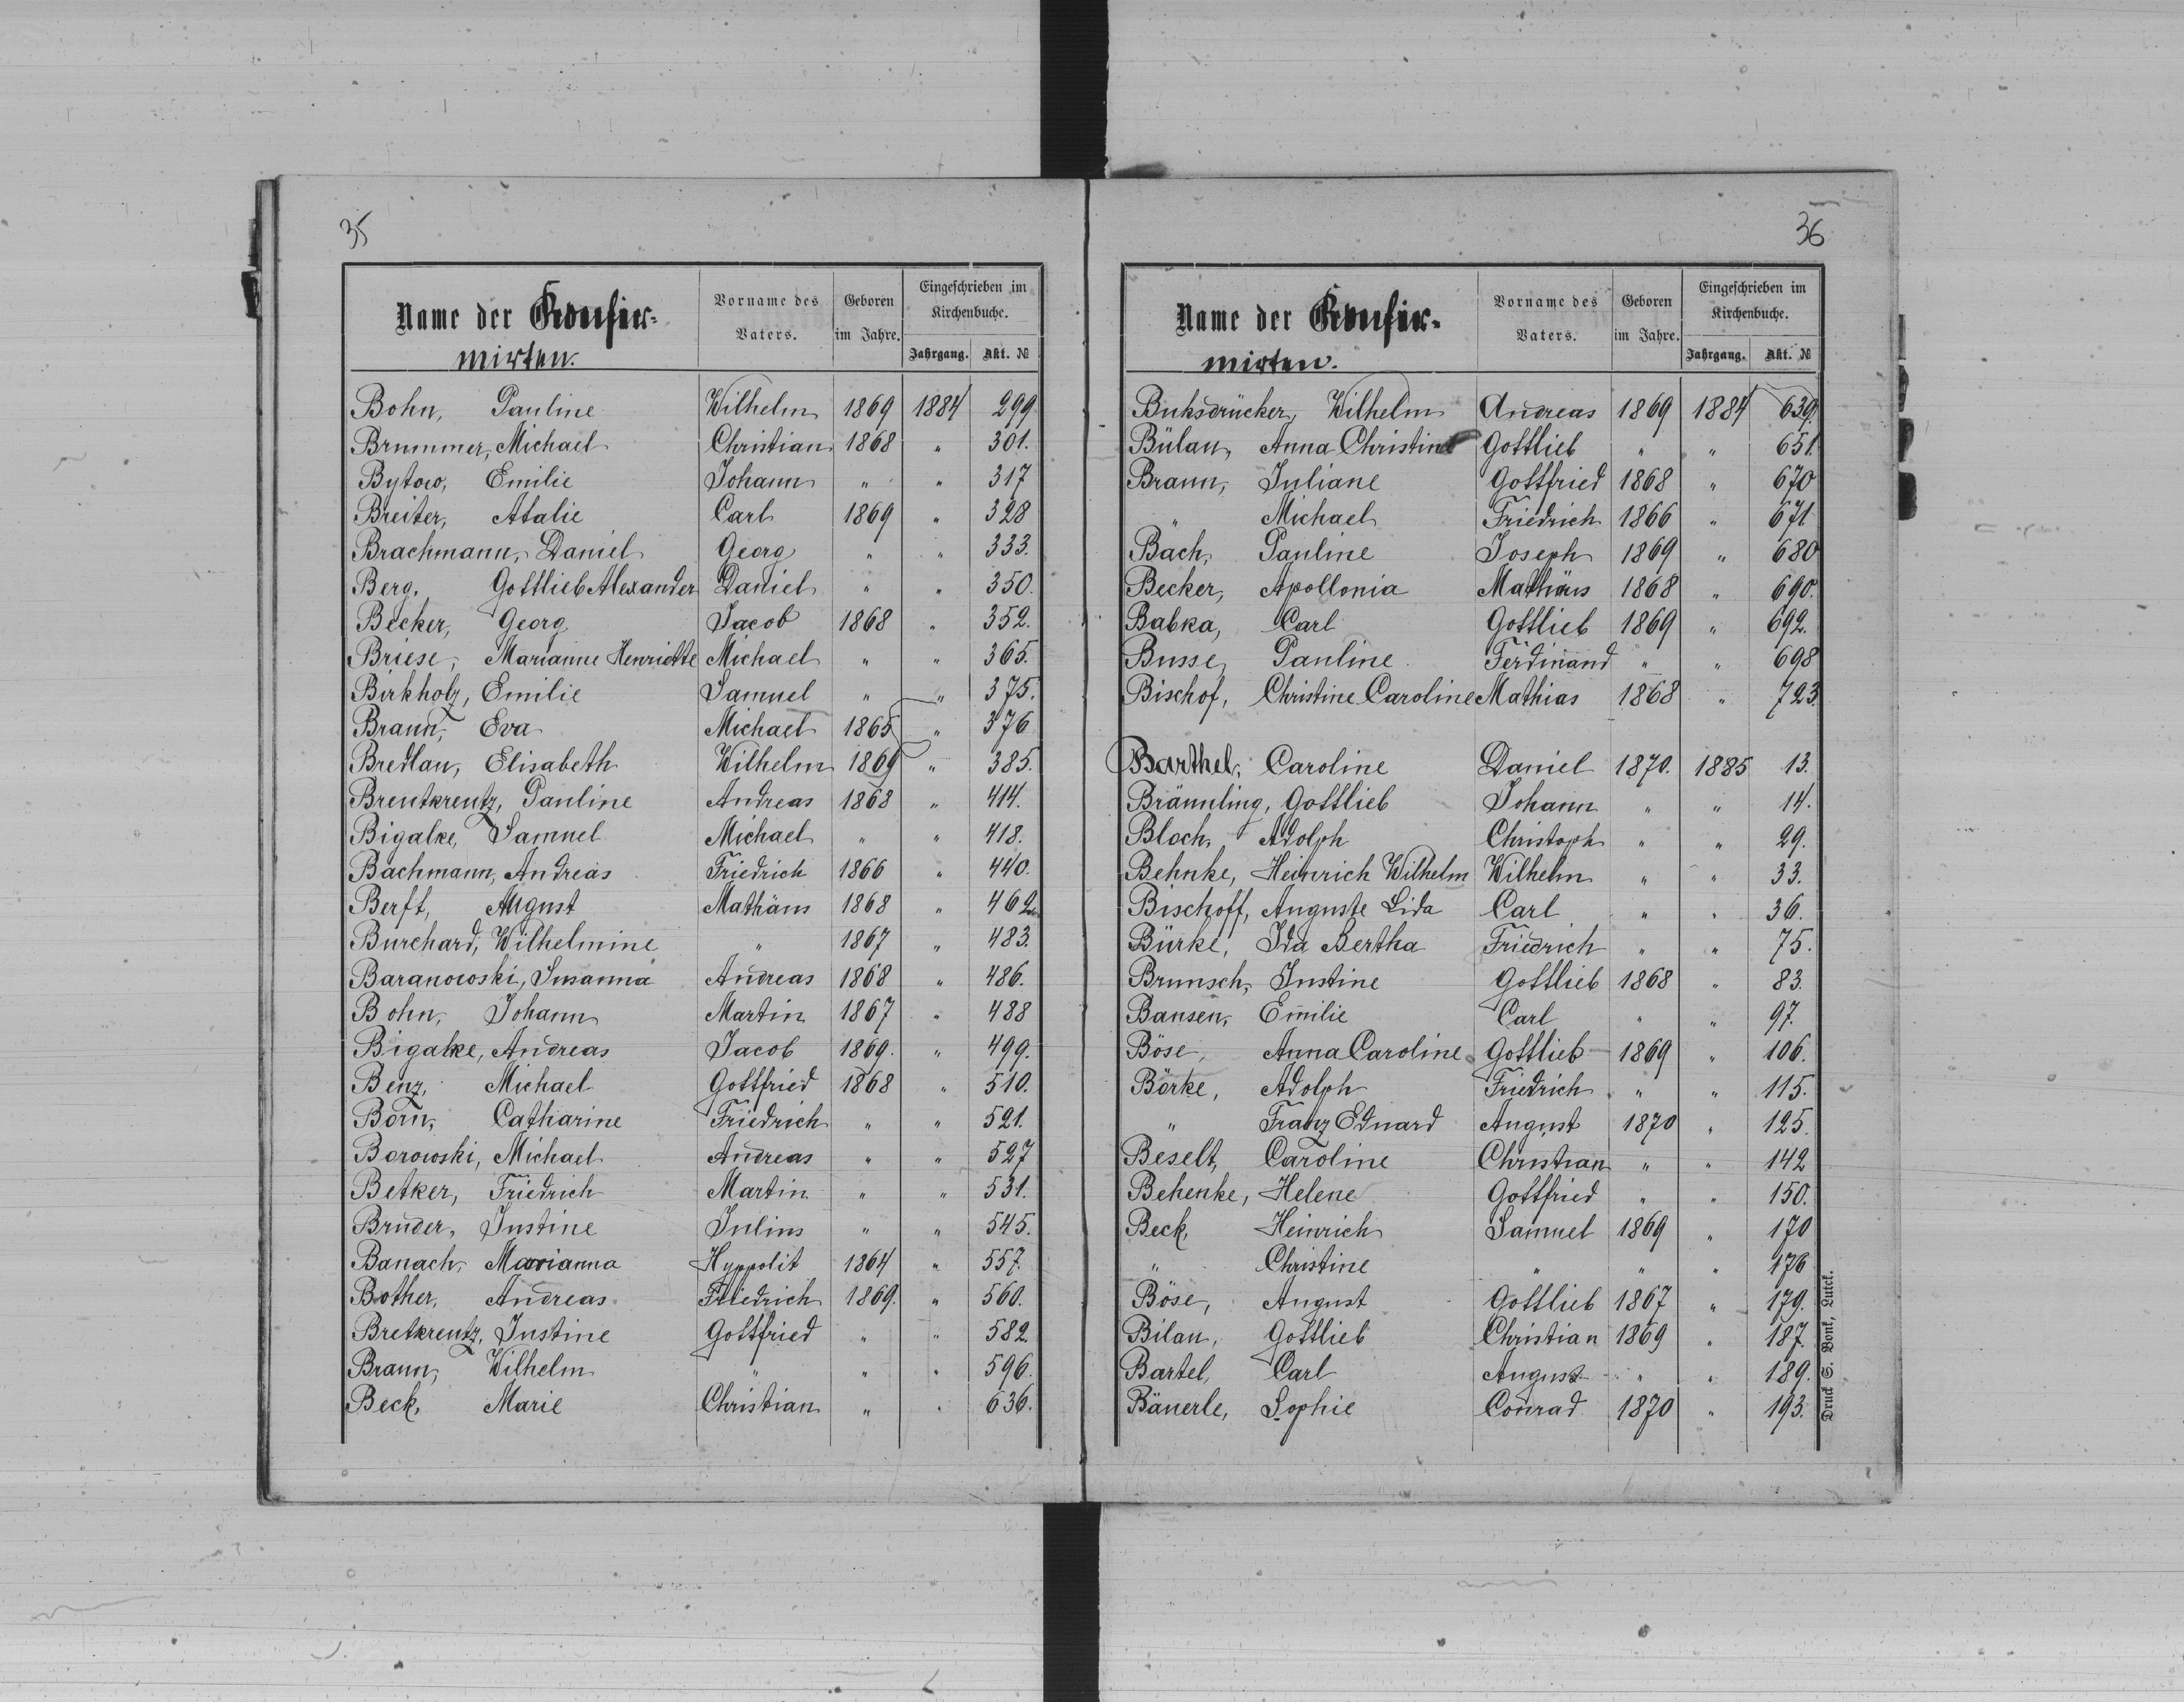 35
Name der Konfir-
mirten.
Vorname des Vaters.
Geboren im Jahre.
Eingeschrieben im Kirchenbuche.
Jahrgang. Akt. №
Bohn, Pauline Wilhelm 1869 1884 299
Brummer, Michael Christian 1868 " 301.
Bytow, Emilie Johann " " 317
Breiter, Atalie Carl 1869 " 328
Brachmann, Daniel Georg " " 333.
Berg, Gottlieb Alexander Daniel " " 350.
Becker, Georg Jacob 1868 " 352.
Briese, Marianne Henriette Michael " " 365.
Birkholz, Emilie Samuel " " 375.
Braun, Eva Michael 1865 " 376
Bredlau, Elisabeth Wilhelm 1869 " 385.
Breutkreutz, Pauline Andreas 1868 " 414.
Bigalke, Samuel Michael " " 418.
Bachmann, Andreas Friedrich 1866 " 440.
Berft, August Mathäus 1868 " 462
Burchard, Wilhelmine " 1867 " 483.
Baranowski, Susanna Andreas 1868 " 486.
Bohn, Johann Martin 1867 " 488
Bigalke, Andreas Jacob 1869. " 499.
Benz, Michael Gottfried 1868 " 510.
Born, Catharine Friedrich " " 521.
Borowski, Michael Andreas " " 527
Betker, Friedrich Martin " " 531.
Bruder, Justine Julius " " 545.
Banach, Marianna Hyppolit 1864 " 557.
Bother, Andreas Friedrich 1869. " 560.
Bretkreutz, Justine Gottfried " " 582.
Braun, Wilhelm " " " 596.
Beck, Marie Christian " " 636.
36
Name der Konfir-
mirten.
Vorname des Vaters.
Geboren im Jahre.
Eingeschrieben im Kirchenbuche.
Jahrgang. Akt. №
Buksdrücker, Wilhelm Andreas 1869 1884 639.
Bülau, Anna Christine Gottlieb " " 651.
Braun, Juliane Gottfried 1868 " 670
" Michael Friedrich 1866 " 671
Bach, Pauline Joseph 1869 " 680
Becker, Apollonia Mathäus 1868 " 690.
Babka, Carl Gottlieb 1869 " 692.
Busse, Pauline Ferdinand " " 698
Bischof, Christine Caroline Mathias 1868 " 723.
Barthel, Caroline Daniel 1870. 1885 13.
Bräunling, Gottlieb Johann " " 14.
Bloch, Adolph Christoph " " 29.
Behnke, Heinrich Wilhelm Wilhelm " " 33.
Bischoff, Auguste Lida Carl " " 36.
Bürke, Ida Bertha Friedrich " " 75.
Brunsch, Justine Gottlieb 1868 " 83.
Bansen, Emilie Carl " " 97.
Böse, Anna Caroline Gottlieb 1869 " 106.
Börke, Adolph Friedrich " " 115.
" Franz Eduard August 1870 " 125.
Beselt, Caroline Christian " " 142
Behenke, Helene Gottfried " " 150.
Beck, Heinrich Samuel 1869 " 170
" Christine " " " 176
Böse, August Gottlieb 1867 " 179.
Bilau, Gottlieb Christian 1869 " 187.
Bartel, Carl August " " 189.
Bäuerle, Sophie Conrad 1870 " 193.
Druck S. Bonk, Luck.